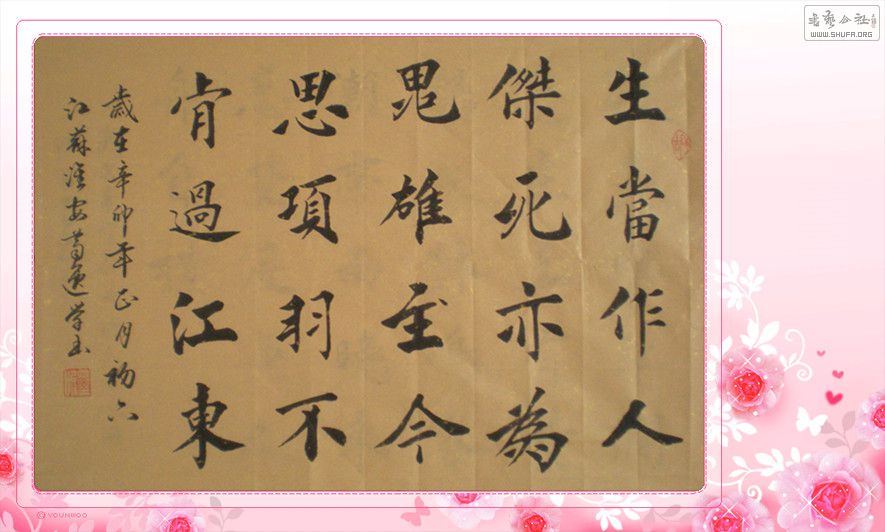 生當作人
傑死亦為
鬼雄至今
思項羽不
肯過江東
歲在辛卯年正月初六
江蘇淮安
书艺公社
WWW.SHUFA.ORG
© YOUNWOO